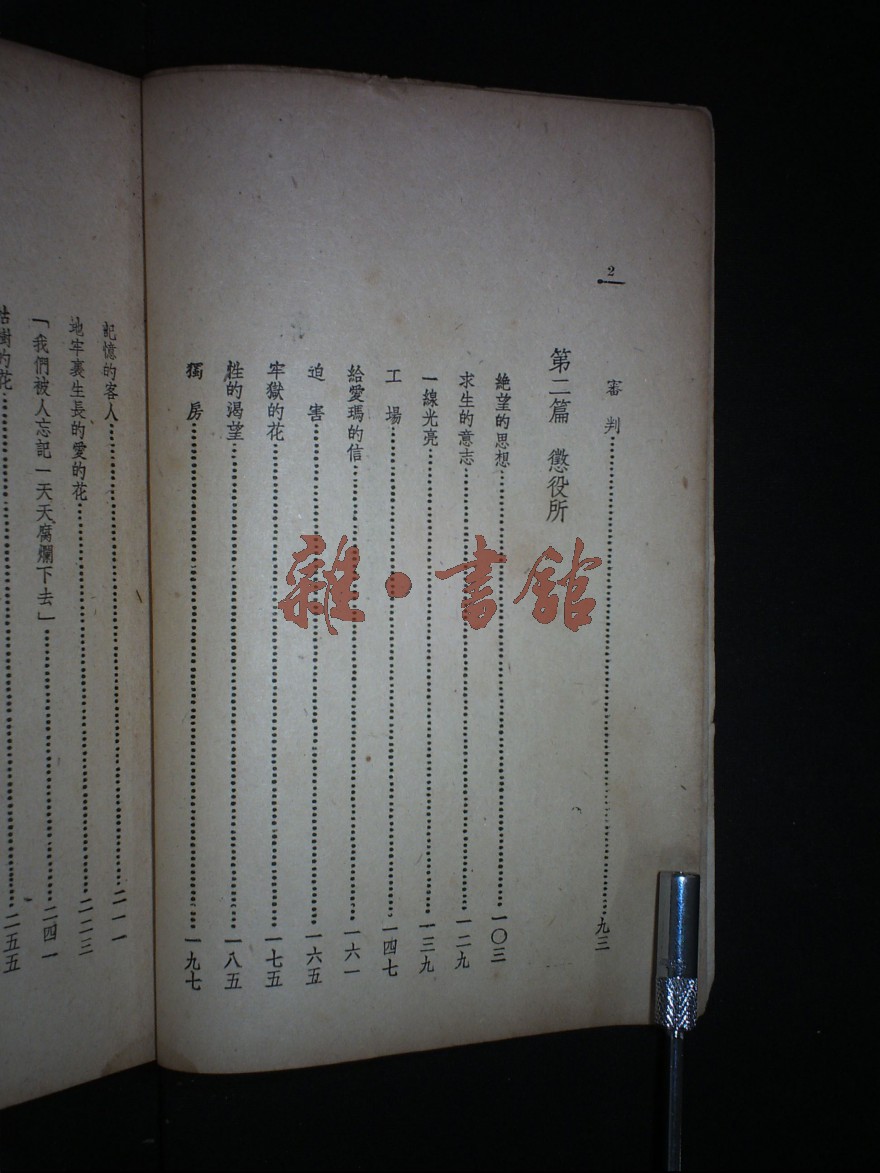 2
審判……九三
第二篇 懲役所
絶望的思想……一〇三
求生的意志……一二九
一線光亮……一三九
工場……一四七
給愛瑪的信……一六一
迫害……一六五
牢獄的花……一七五
性的渴望……一八五
獨房……一九七
記憶的客人……二一一
地牢裏生長的愛的花……二二三
「我們被人忘記一天天腐爛下去」……二四一
枯樹的花……二五五
雜·書館